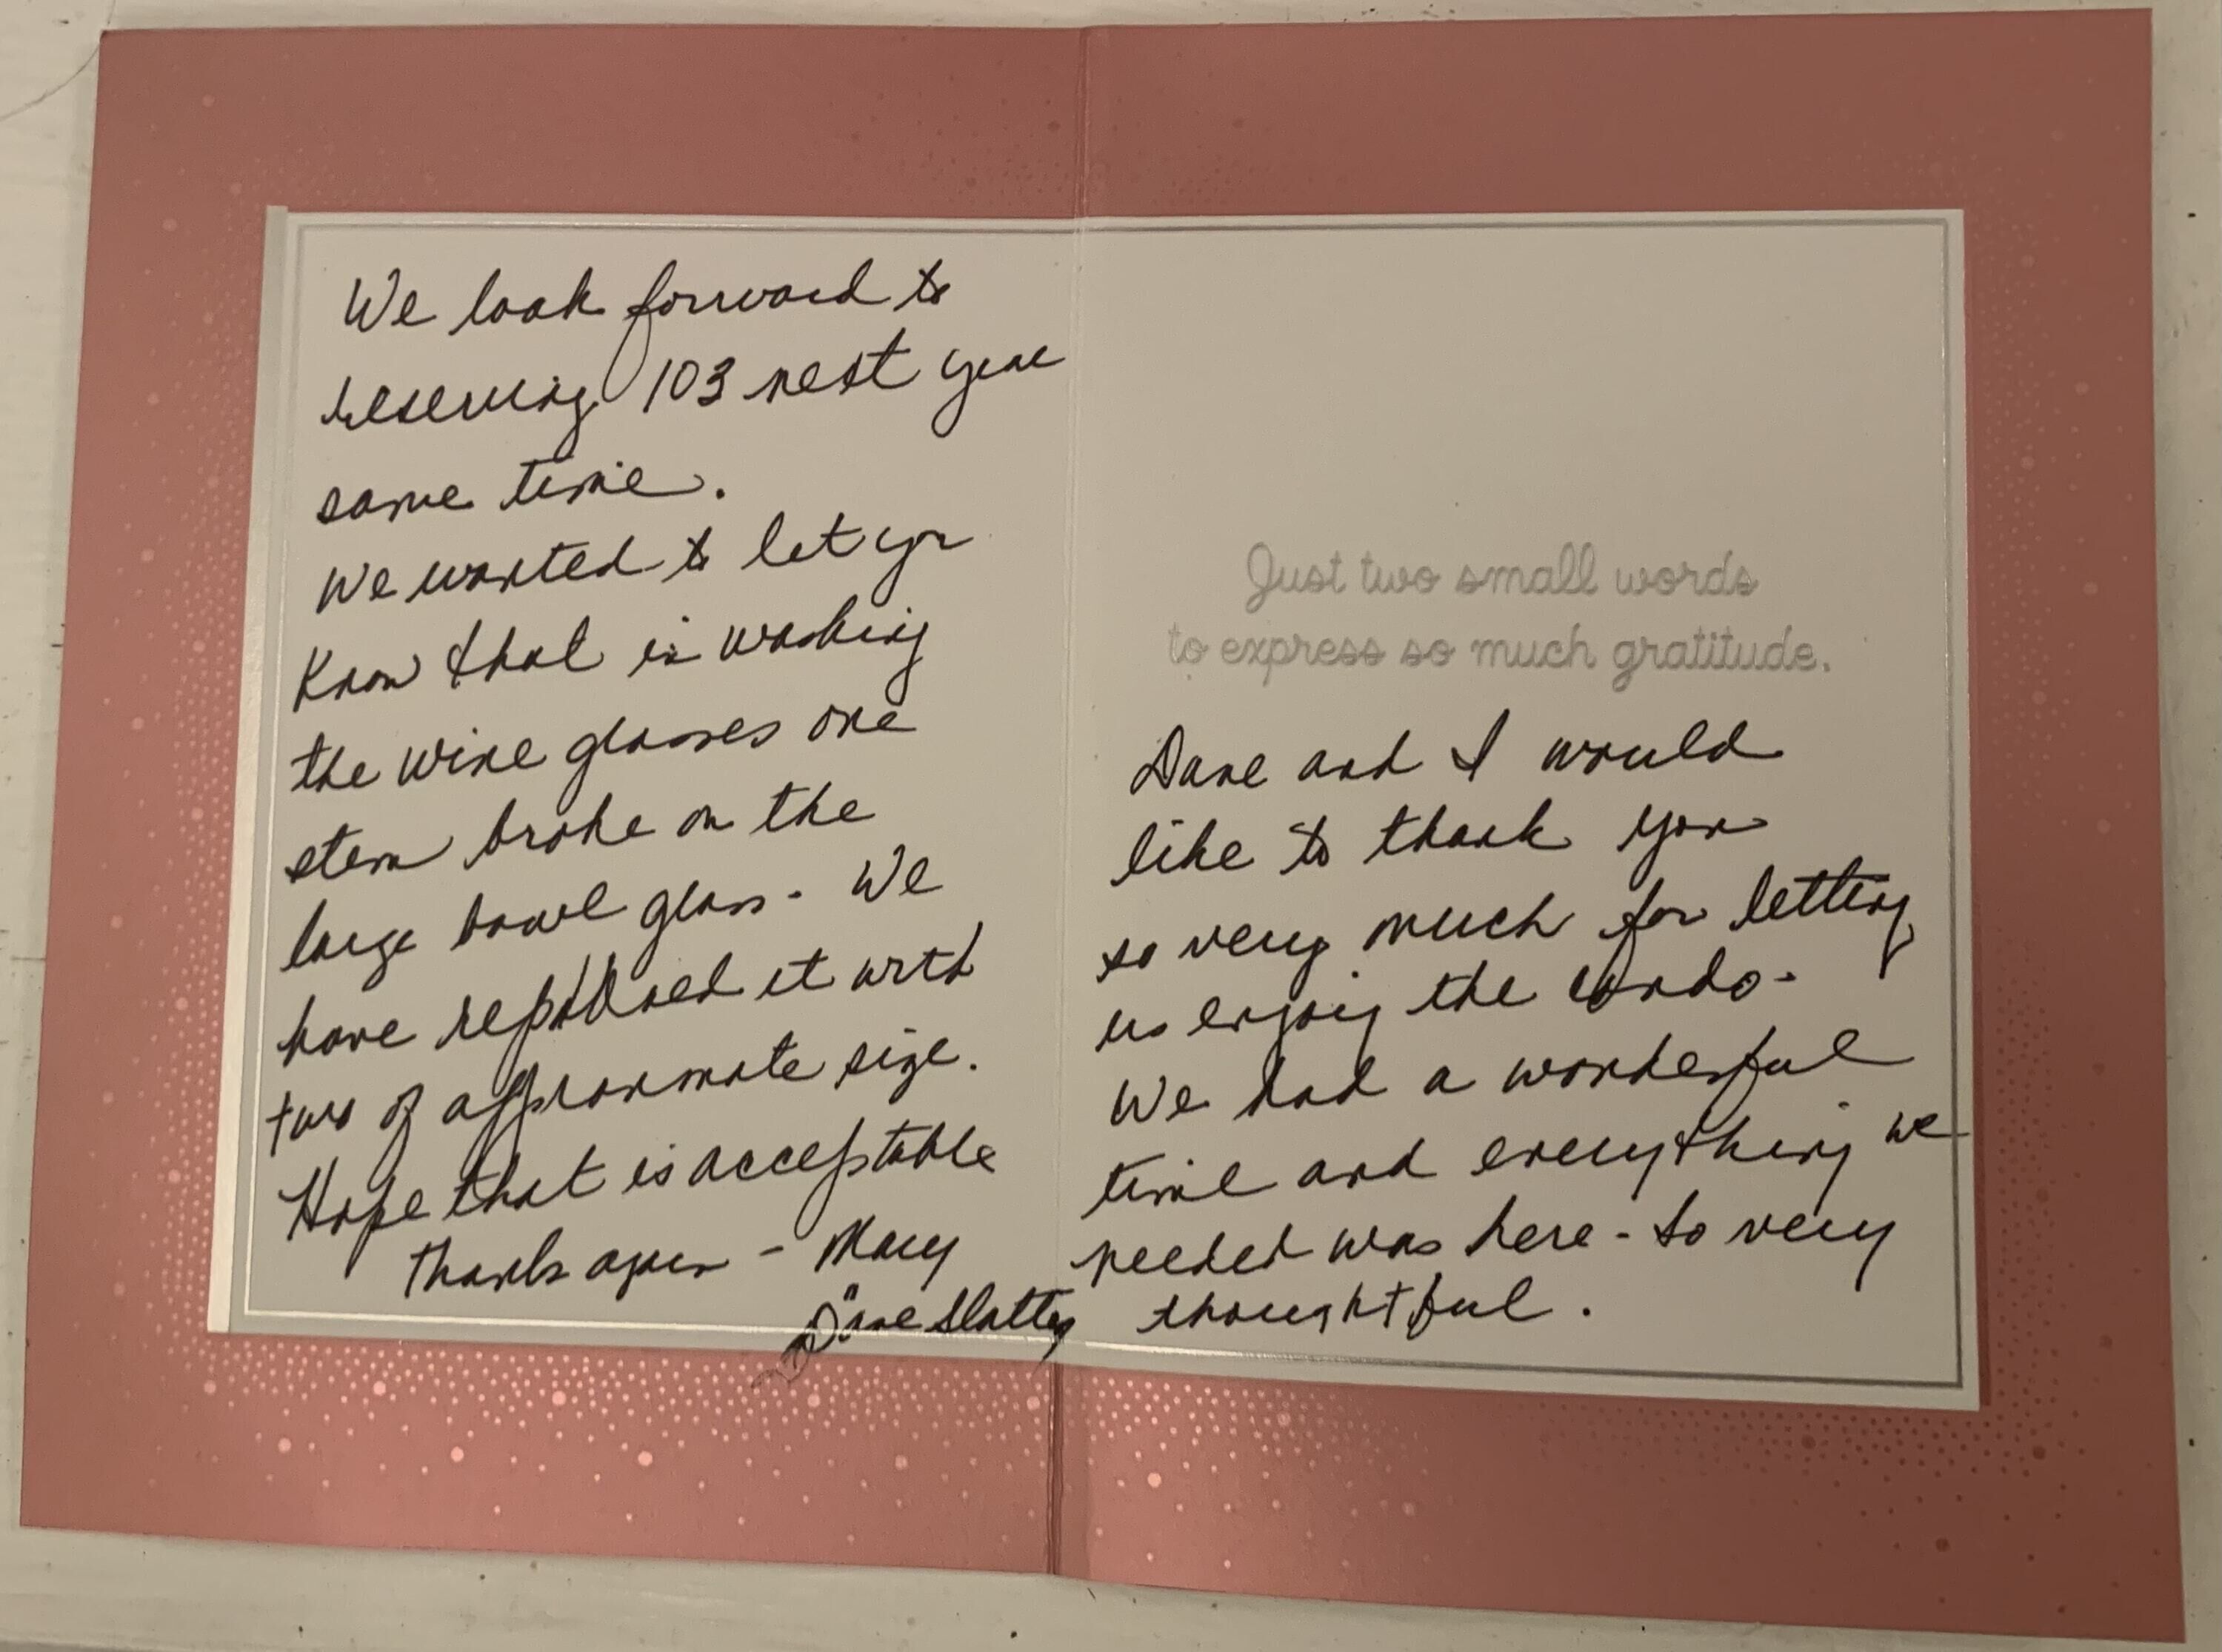 We look forward to
reserving 103 next year
same time.
We wanted to let you
know that in washing
the wine glasses one
stem broke on the
large bowl glass - We
have replaced it with
two of approximate size.
Hope that is acceptable
Thanks again - Mary
Dave Slattery
Just two small words
to express so much gratitude.
Dave and I would
like to thank you
so very much for letting
us enjoy the condo -
We had a wonderful
time and everything we
needed was here - so very
thoughtful.